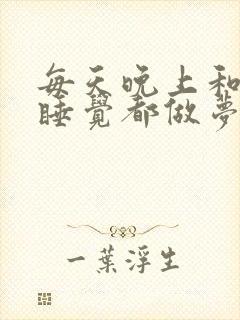 每天晚上和
睡覺都做夢
一葉浮生